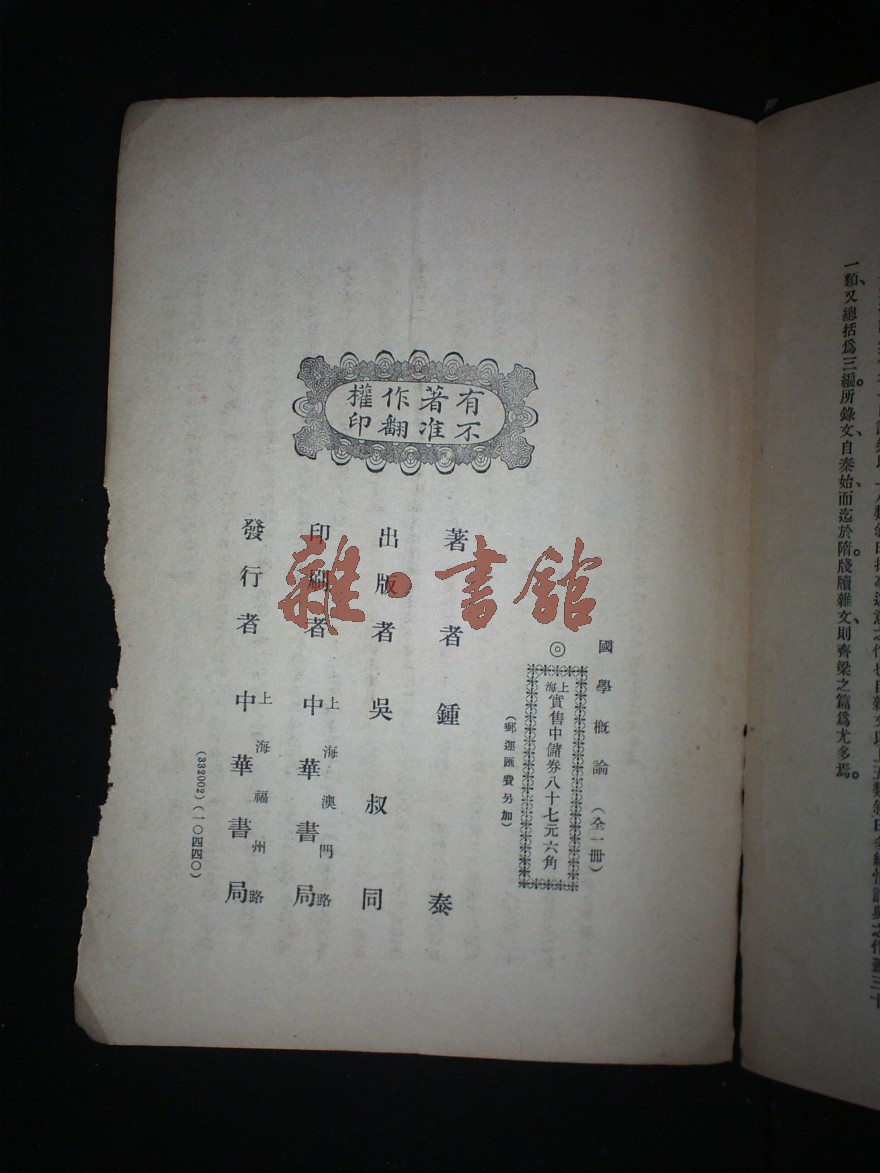 有著作權
不准翻印
國學概論（全一册）
◎上海實售中儲券八十七元六角
（郵運匯費另加）
著者鍾泰
出版者吳叔同
印刷者上海澳門路中華書局
發行者上海福州路中華書局
(332002)(一〇四四〇)
雜·書舘
一類、又總括爲三編。所錄文、自秦始、而迄於隋。牋牘雜文、則齊梁之篇爲尤多焉。